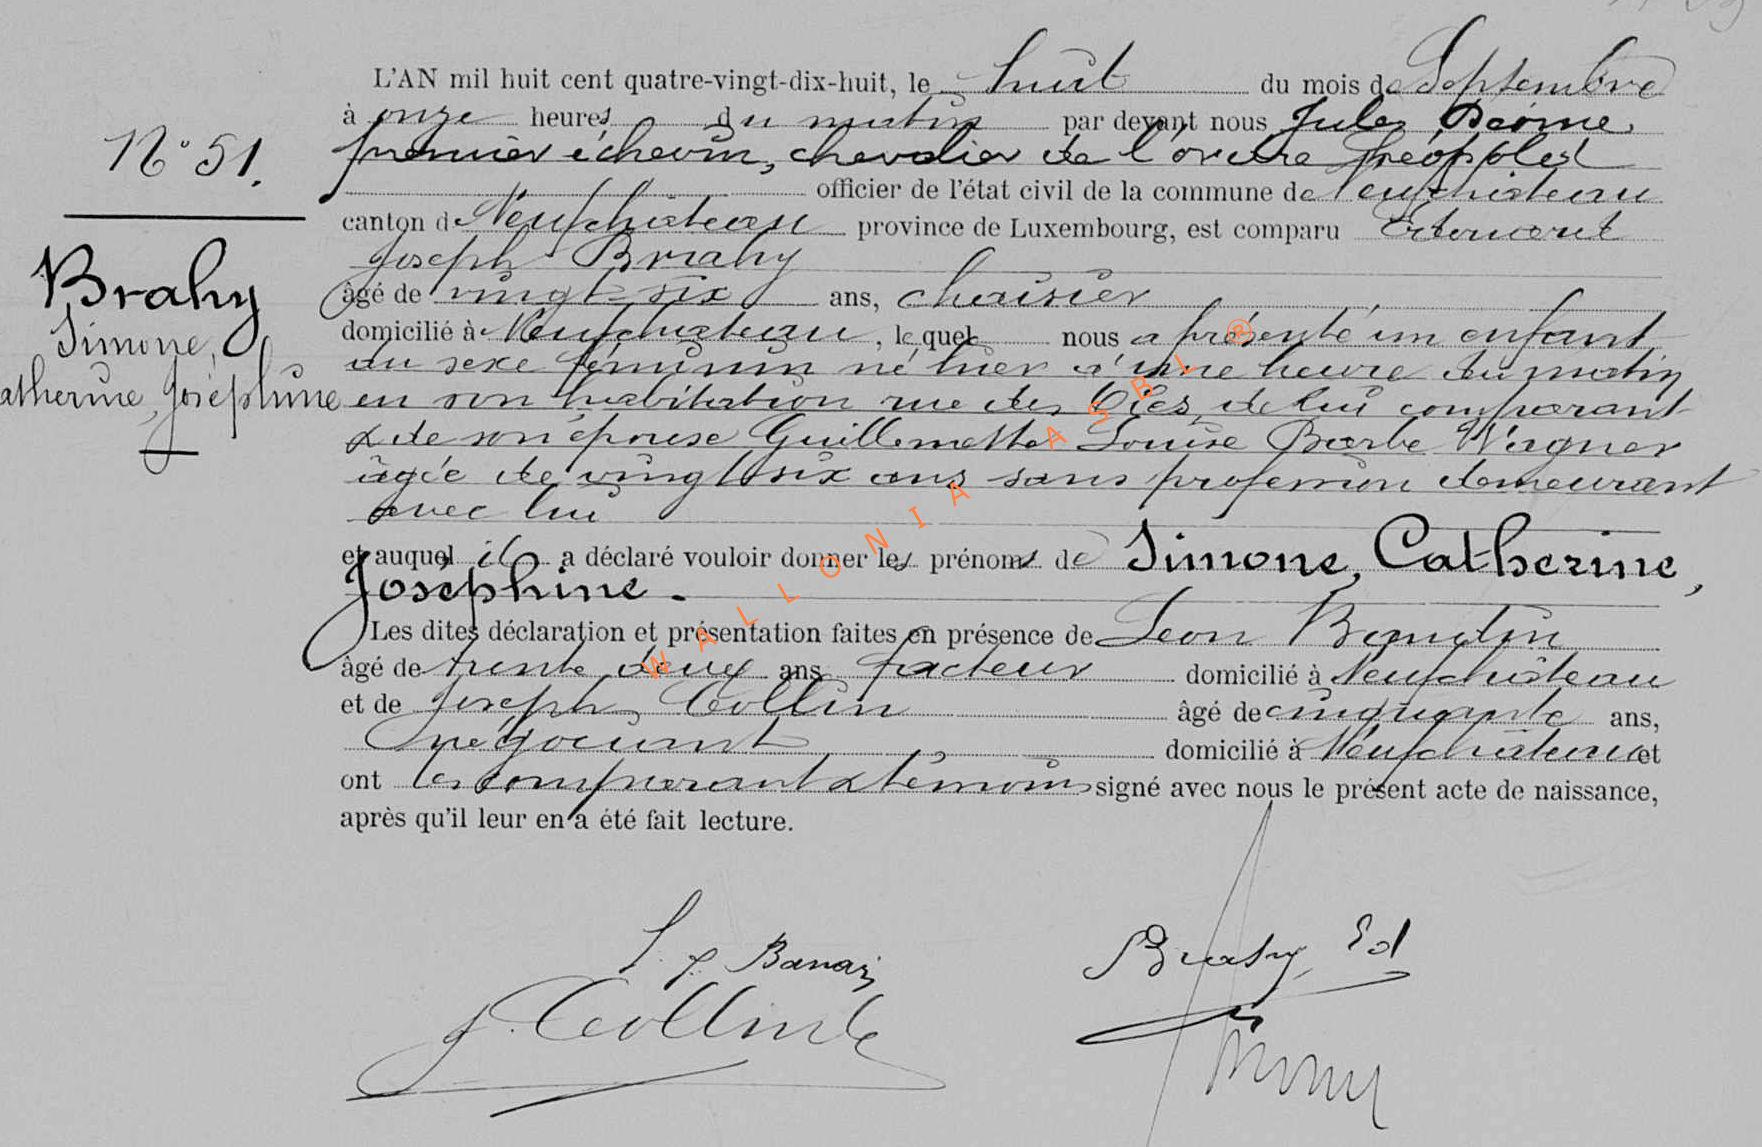 N° 51.
Brahy
Simone,
Catherine, Joséphine
L'AN mil huit cent quatre-vingt-dix-huit, le huit du mois de Septembre
à onze heures du matin par devant nous Jules
premier échevin, chevalier de l'ordre Léopold
officier de l'état civil de la commune de Neufchâteau
canton de Neufchâteau province de Luxembourg, est comparu Edouard
Joseph Brahy
âgé de vingt-six ans, chaisier
domicilié à Neufchâteau, lequel nous a présenté un enfant
du sexe féminin né hier à une heure du matin
en son habitation rue des de lui comparant
& de son épouse Guillemette Louise Barbe Wagner
âgée de vingt six ans sans profession demeurant
avec lui
et auquel il a déclaré vouloir donner les prénoms de Simone, Catherine,
Joséphine.
Les dites déclaration et présentation faites en présence de Léon
âgé de trente deux ans facteur domicilié à Neufchâteau
et de Joseph Collin âgé de cinquante ans,
négociant domicilié à Neufchâteau et
ont les comparant & témoins signé avec nous le présent acte de naissance,
après qu'il leur en a été fait lecture.
Brahy Ed
WALLONIA ASBL ®